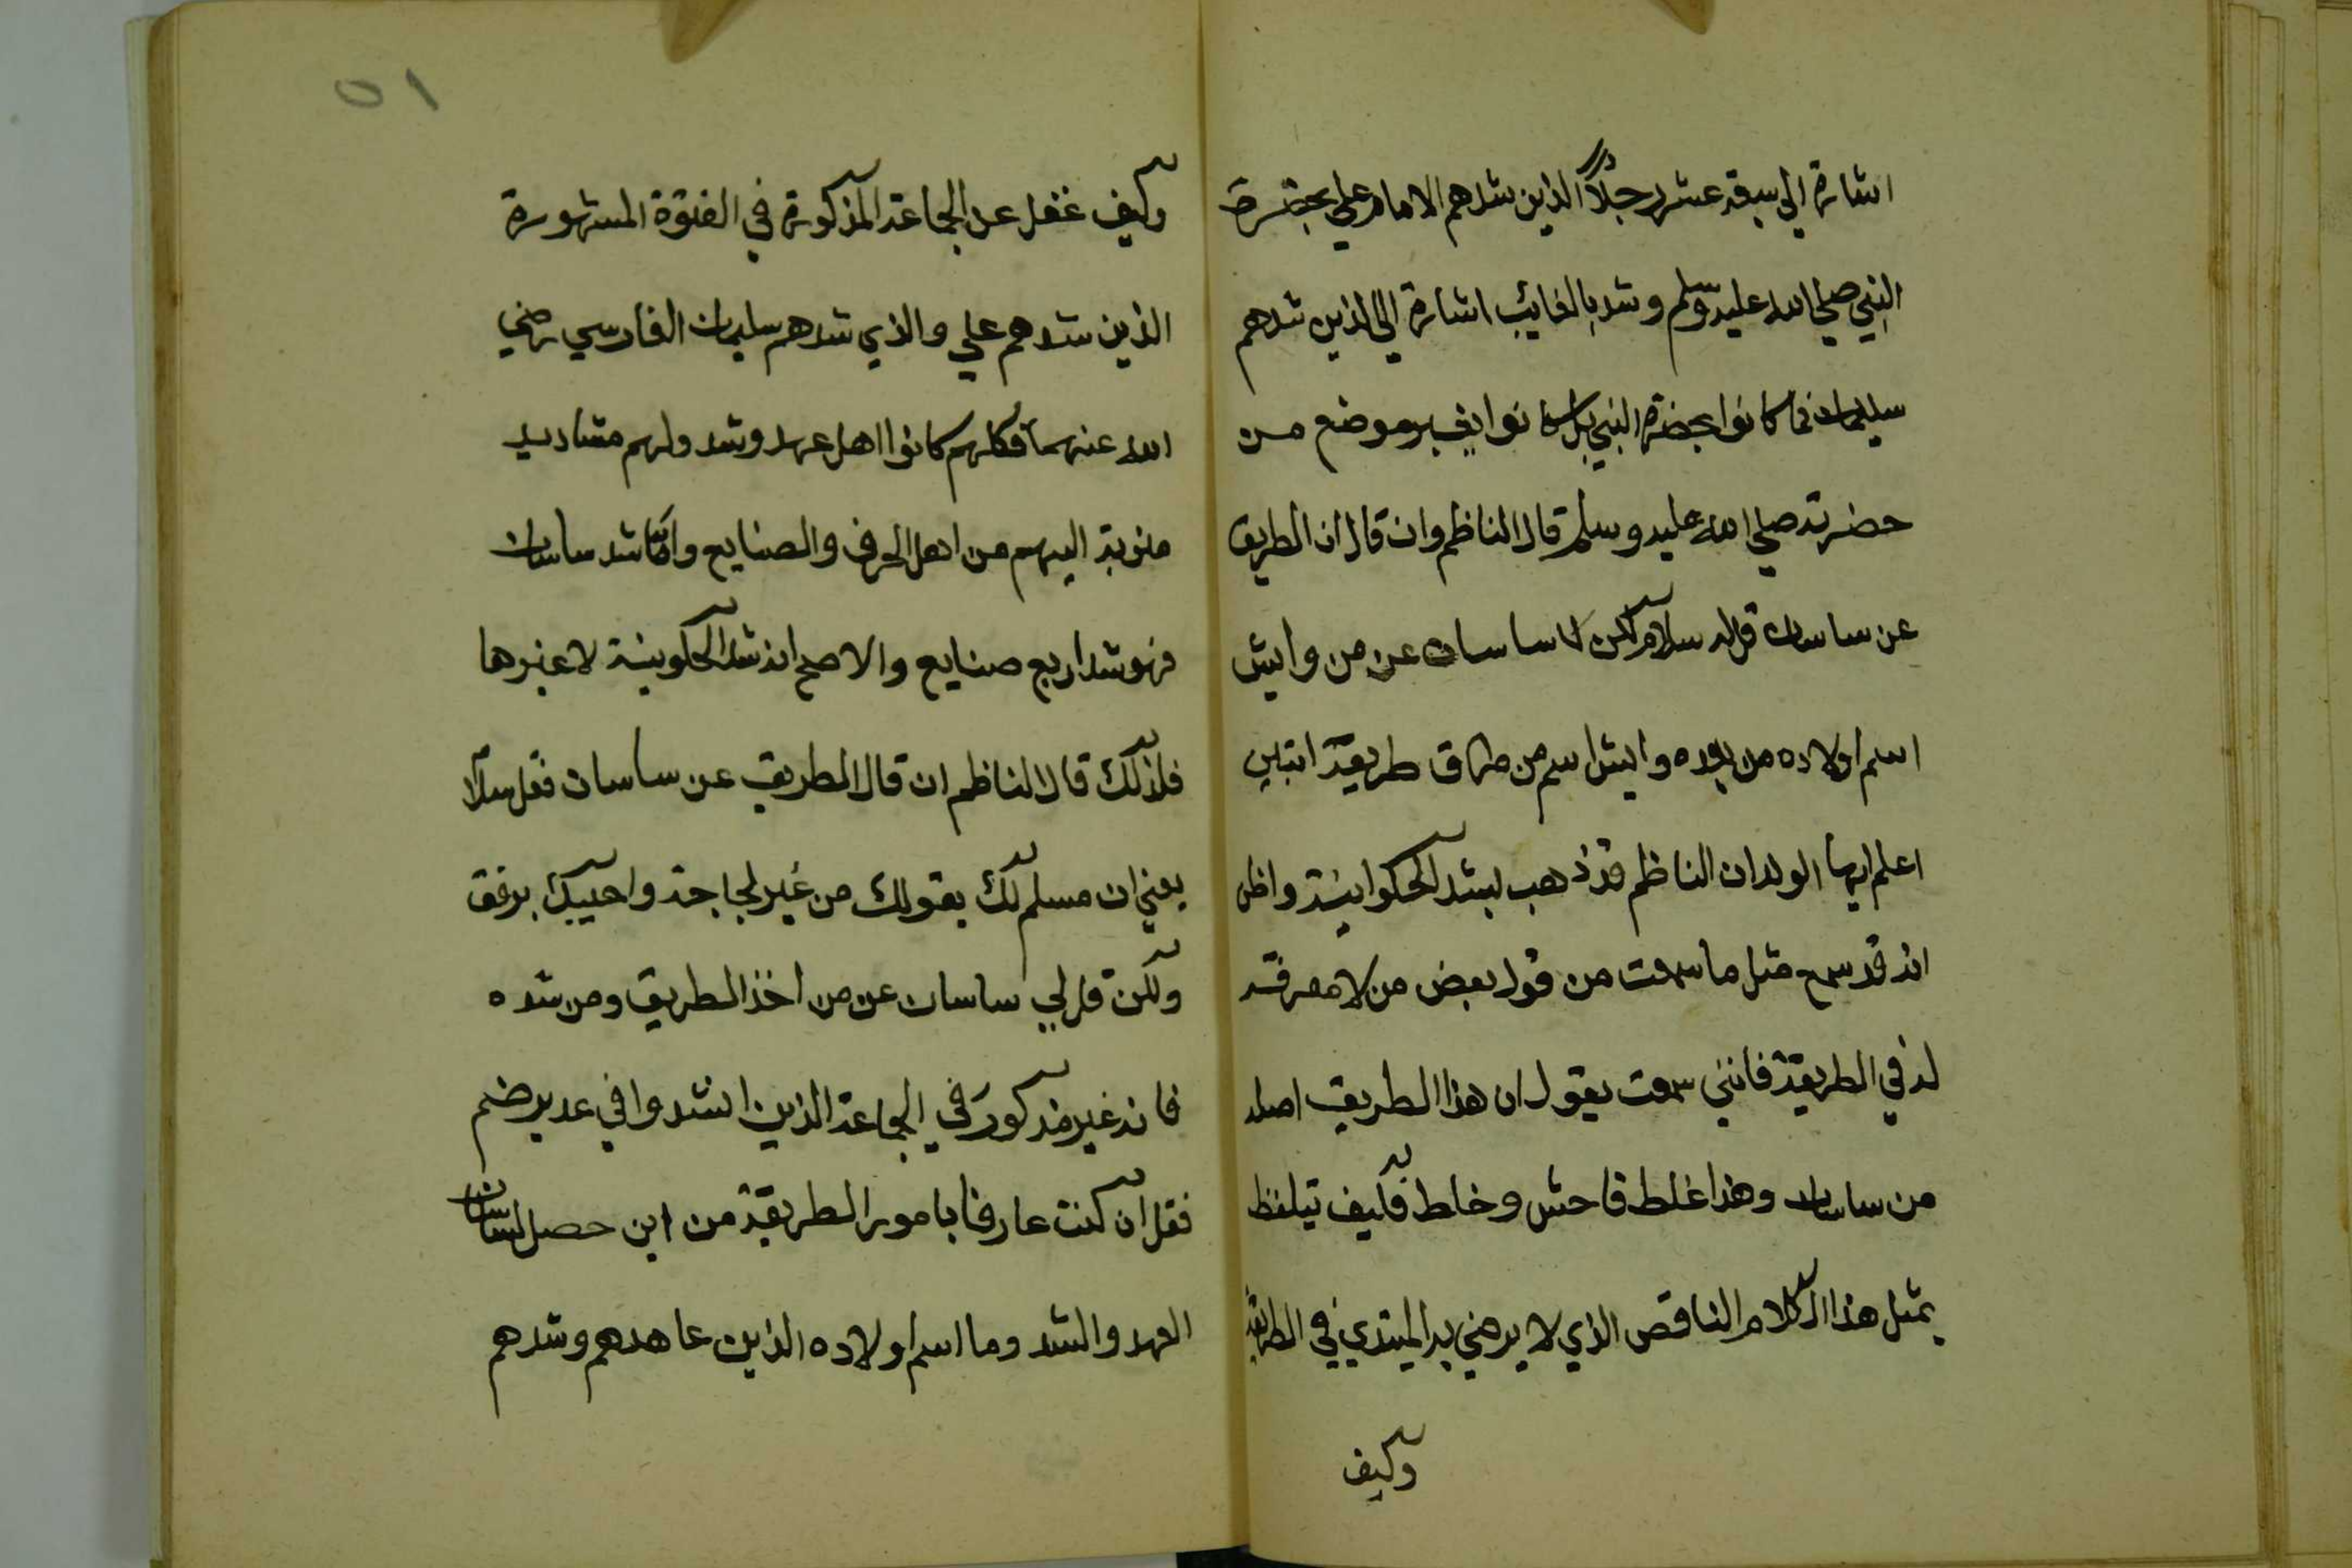 اشارة الى سبعة عشر رجلاً الذين شدهم الامام علي بحضرة
النبي صلى الله عليه وسلم وشد بالغايب اشارة الى الذين شدهم
سليمان فما كانوا بحضرة النبي بل كانوا بغير موضع من
حضرته صلى الله عليه وسلم قال الناظم وان قال ان الطريق
عن ساسان قل له سلام لكن لا ساسان عن من وايش
اسم اولاده من بعده وايش اسم من طريقة
اعلم ايها الولد ان الناظم قد ذهب لشد الحكوانية واظن
انه قد سمع مثل ما سمعت من قول بعض من لا معرفة
له في الطريقة فانني سمعت يقول ان هذا الطريق اصله
من ساسان وهذا غلط فاحش وخلط فكيف تيلفظ
بمثل هذا الكلام الناقص الذي لا يرضي به المبتدي في الطريقة
وكيف
٥١
وكيف غفل عن الجماعة المذكورة في الفتوة المشهورة
الذين شدهم علي والذي شدهم سليمان الفارسي رضي
الله عنهما فكلهم كانوا اهل عهد وشد ولهم مشاديد
منوبة اليهم من اهل الحرف والصنايع واما شد ساسان
فهو شد اربع صنايع والاصح انه شد الحكوينة لا غيرها
فلذلك قال الناظم ان قال الطريق عن ساسان فقل سلاما
يعني ان مسلم لك بقولك من غير لجاجة واجيبك برفق
ولكن قل لي ساسان عن من اخذ الطريق ومن شده
فانه غير مذكور في الجماعة الذين انشدوا في غدير خم
فقل ان كنت عارفا بامور الطريقة من اين حصل لساسان
العهد والشد وما اسم اولاده الذين عاهدهم وشدهم